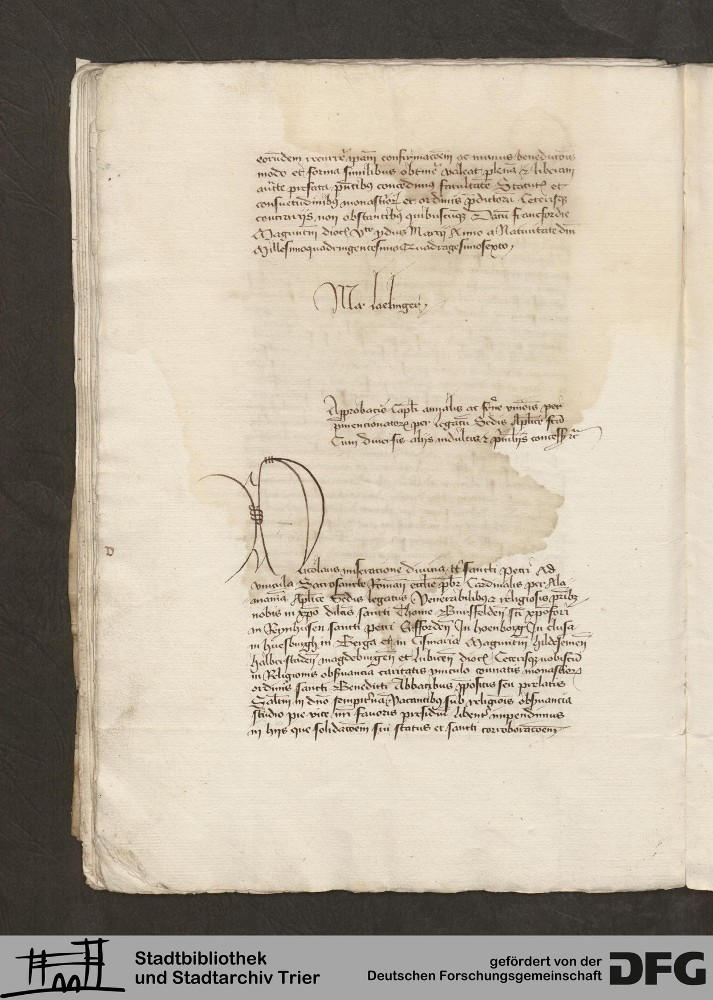 eorundem recurrere ipsam confirmacoem ac munus benedictois
modo et forma similibus obtinere valeat plenam & liberam
aucte prefata pntibus concedimus facultate Statutis et
consuetudinibus monasterior et ordinis pdictor Ceterisqz
contrariis non obstantibus quibuscunqz Datum francfordie
Maguntin dioc pridie Marcii Anno a Natiuitate dni
Millesimoquadringentesimoquadragesimosexto
Approbacio capli annalis ac vnionis per
pmencionatorz per legatum Sedis Aplice
Cum diuersis aliis indultis & priuilegiis concess
Nicolaus miseracione diuina tt Sancti Petri Ad
vincula Sacrosancte Romane ecclie pbr Cardinalis per Ala
maniam Aplice Sedis legatus Venerabilibus & religiosis
nobis in xpo dilcis sancti Thome Bursfelden scti xpofori
in Reynhusen sancti petri In hoenborg In clusa
in huesburgh in Berga et in Cismaria Maguntin hildesemen
halberstaden magdeburgen et lubicen dioc Ceterisqz nobiscum
in Religionis obseruancia caritatis vinculo monasterior
ordinis sancti Benedicti Abbatibus ppositis seu prelatis
Saltm in dno sempiternam vacantibus sub religiois obseruancia
studio pie vite nri fauoris presidium libenter impendimus
in hiis que solidacoem sui status et sancti corroboracoem
Stadtbibliothek
und Stadtarchiv Trier
gefördert von der
Deutschen Forschungsgemeinschaft
DFG